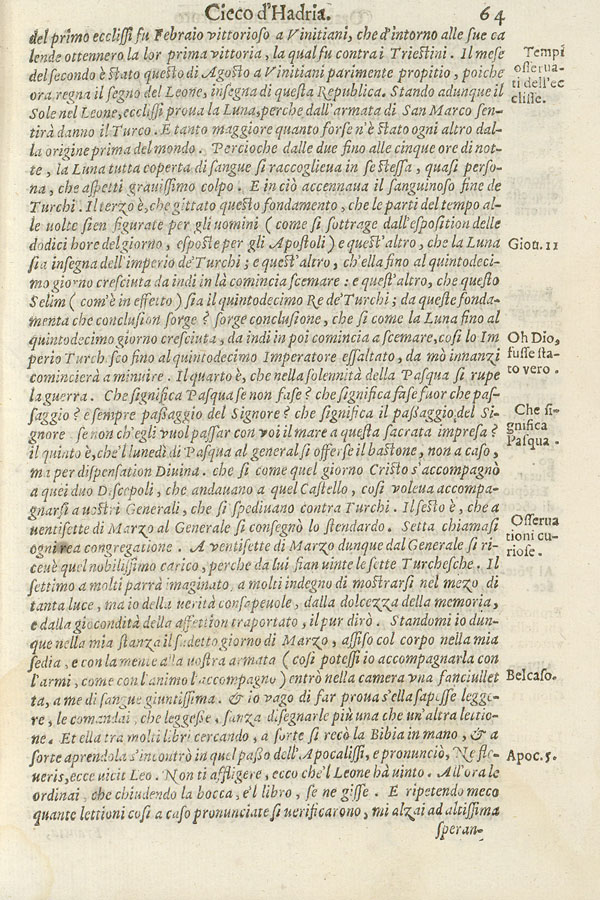 Cieco d'Hadria. 64
del primo ecclissi fu Febraio vittorioso a Vinitiani, che d'intorno alle sue ca
lende ottennero la lor prima vittoria, la qual fu contra i Triestini. Il mese
del secondo è stato questo di Agosto a Vinitiani parimente propitio, poiche
ora regna il segno del Leone, insegna di questa Republica. Stando adunque il
Sole nel Leone, ecclissi proua la Luna, perche dall'armata di San Marco sen-
tirà danno il Turco. E tanto maggiore quanto forse n'è stato ogni altro dal-
la origine prima del mondo. Percioche dalle due fino alle cinque ore di not-
te, la Luna tutta coperta di sangue si raccoglieua in se stessa, quasi perso-
na, che aspetti grauissimo colpo. E in ciò accennaua il sanguinoso fine de
Turchi. Il terzo è, che gittato questo fondamento, che le parti del tempo al-
le uolte sien figurate per gli uomini (come si sottrage dall'esposition delle
dodici hore del giorno, esposte per gli Apostoli) e quest'altro, che la Luna
sia insegna dell'imperio de'Turchi; e quest'altro, ch'ella fino al quintodeci-
mo giorno cresciuta da indi in là comincia scemare: e quest'altro, che questo
Selim (com'è in effetto) sia il quintodecimo Re de'Turchi; da queste fonda-
menta che conclusion sorge? sorge conclusione, che si come la Luna fino al
quintodecimo giorno cresciuta, da indi in poi comincia a scemare, così lo Im
perio Turch sco fino al quintodecimo Imperatore essaltato, da mò innanzi
comincierà a minuire. Il quarto è, che nella solennità della Pasqua si rupe
la guerra. Che significa Pasqua se non fase? che significa fase fuor che pas-
saggio? e sempre passaggio del Signore? che significa il passaggio del Si-
gnore se non ch'egli vuol passar con voi il mare a questa sacrata impresa?
il quinto è, che'l lunedì di Pasqua al general si offerse il bastone, non a caso,
ma per dispensation Diuina. che si come quel giorno Cristo s'accompagnò
a quei duo Discepoli, che andauano a quel Castello, così voleua accompa-
gnarsi a uostri Generali, che si spediuano contra Turchi. Il sesto è, che a
uentisette di Marzo al Generale si consegnò lo stendardo. Setta chiamasi
ogni rea congregatione. A ventisette di Marzo dunque dal Generale si ri-
ceuè quel nobilissimo carico, perche da lui sian uinte le sette Turchesche. Il
settimo a molti parrà imaginato, a molti indegno di mostrarsi nel mezo di
tanta luce, ma io della uerità consapeuole, dalla dolcezza della memoria,
e dalla giocondità della affettion traportato, il pur dirò. Standomi io dun-
que nella mia stanza il sudetto giorno di Marzo, assiso col corpo nella mia
sedia, e con la mente alla uostra armata (così potessi io accompagnarla con
l'armi, come con l'animo l'accompagno) entrò nella camera vna fanciullet
ta, a me di sangue giuntissima. & io vago di far proua s'ella sapesse legge-
re, le comandai, che leggesse, sanza disegnarle più una che un'altra lettio-
ne. Et ella tra molti libri cercando, a sorte si recò la Bibia in mano, & a
sorte aprendola s'incontrò in quel passo dell'Apocalissi, e pronunciò, Ne fle-
ueris, ecce uicit Leo. Non ti affligere, ecco che'l Leone hà uinto. All'ora le
ordinai, che chiudendo la bocca, e'l libro, se ne gisse. E ripetendo meco
quante lettioni così a caso pronunciate si uerificarono, mi alzai ad altissima
speran-
Tempi
osserua-
ti dell'ec
clisse.
Giou. 11
Oh Dio,
fusse sta-
to vero.
Che si-
gnifica
Pasqua.
Osserua
tioni cu-
riose.
Belcaso.
Apoc. 5.